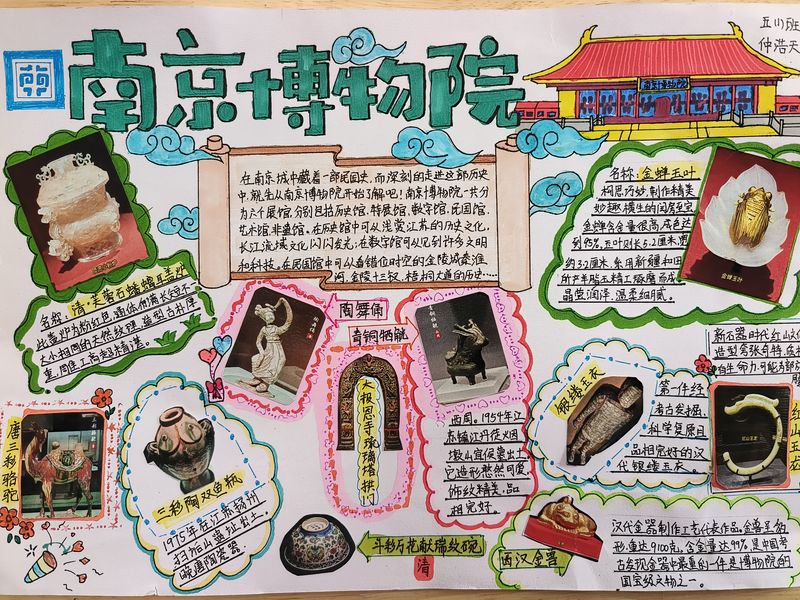 南京博物院
五(1)班
仲浩天
南京博物院
在南京城中藏着一部民国史,而深刻的走进这部历史
中,就先从南京博物院开始了解吧!南京博物院一共分
为六个展馆,分别包括历史馆,特展馆,数字馆,民国馆,
艺术馆,非遗馆。在历史馆中可从浅赏江苏的历史文化,
长江流域文化闪闪发光;在数字馆可以见到许多文明
和科技。在民国馆中可从看错位时空的金陵城秦淮
河,金陵十三钗,梧桐大道的历史……
名称:金蝉玉叶
构思巧妙,制作精美
妙趣横生的闺房至宝
金蝉含金量很高,成色达
到95%,玉叶则长5.2厘米宽
约3.2厘米,系用新疆和田
所产羊脂玉精工琢磨而成,
晶莹润泽,温柔细腻。
金蝉玉叶
名称:清·芙蓉石蟠螭耳盖炉
此盖炉为粉红色,通体布满长短不一
大小相同的天然纹理,造型古朴厚
重,周连工亮超精湛。
陶舞俑
青铜牺觥
大报恩寺琉璃塔拱门
西周。1954年江
苏镇江丹徒火因
墩山宜侯墓出土
它造型憨然可爱
饰纹精美,品
相完好。
银缕玉衣
第一件经
考古发掘,
科学复原且
品相完好的汉
代银缕玉衣。
新石器时代红山文
造型夸张奇特,
有生命力,可能为部
红山玉龙
唐三彩骆驼
三彩陶双鱼瓶
1975年在江苏扬州
扫垢山遗址出土。
晚唐陶瓷器。
斗彩万花献瑞纹碗
清
西汉金兽
汉代金器制作工艺代表作品,金兽呈豹
形,重达9100克,含金量达99%,是中国考
古发现金器中最重的一件是博物院的
国宝级文物之一。